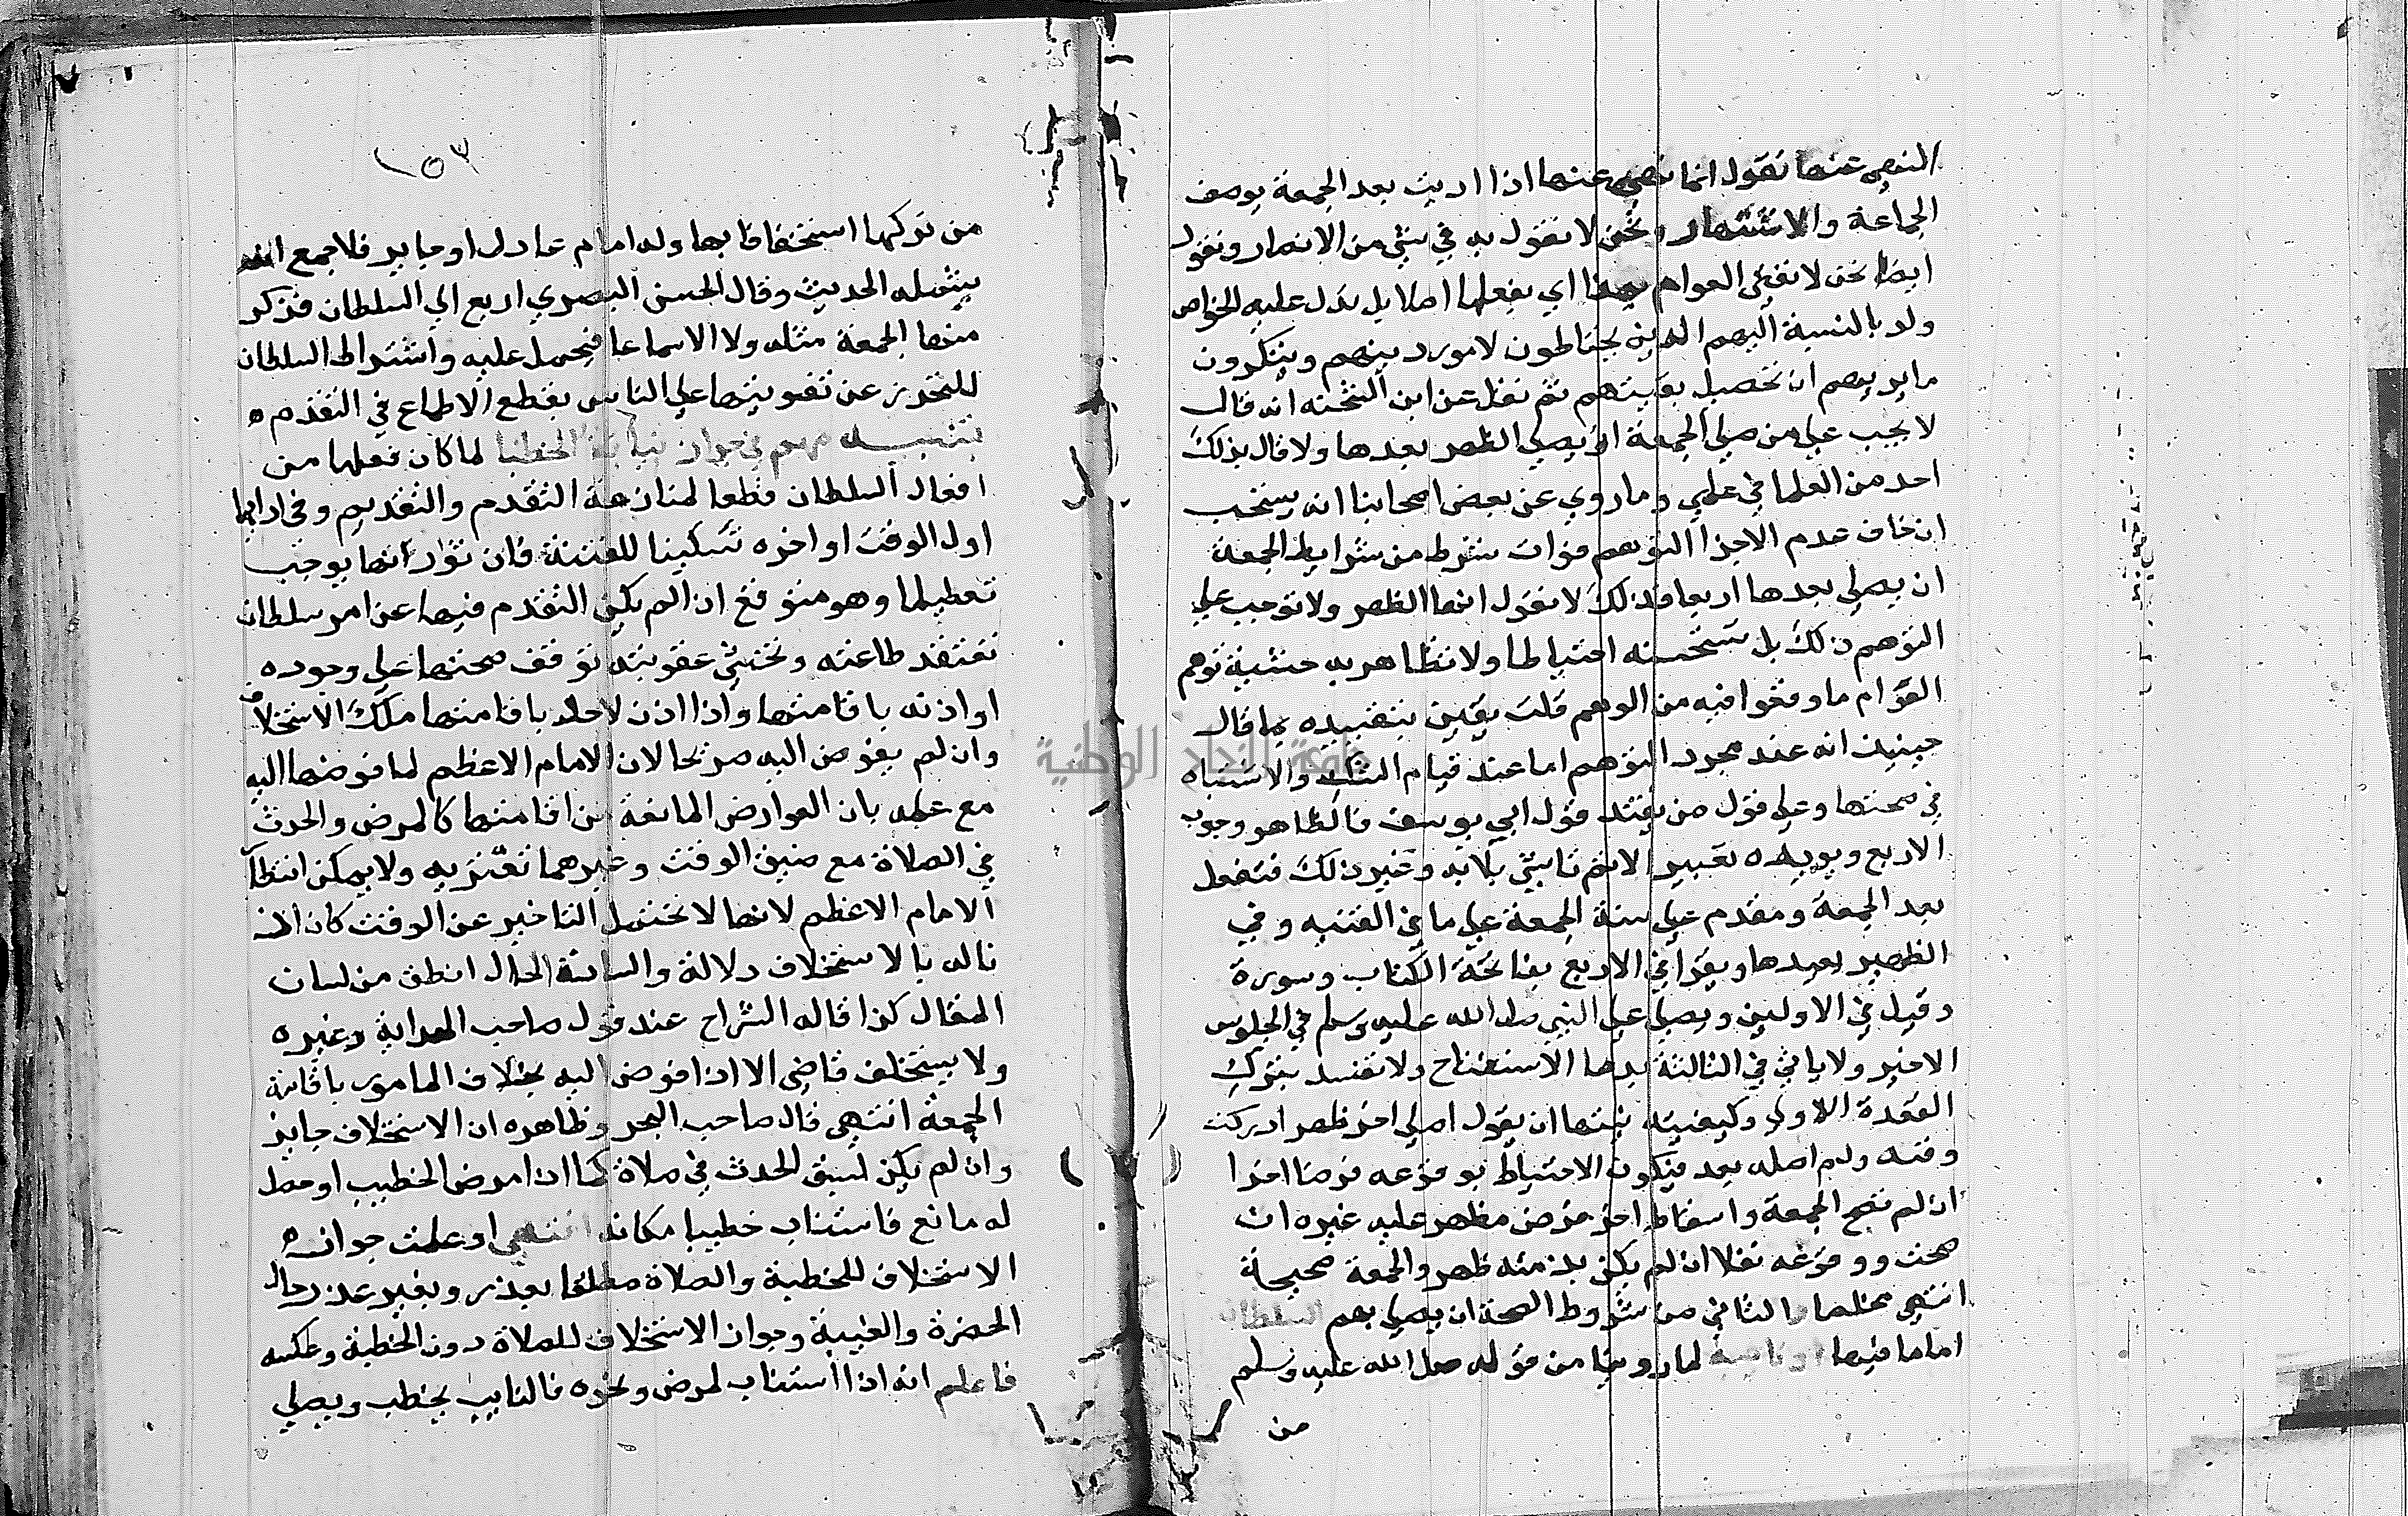 النهى عنها نقول انما نهى عنها اذا اديت بعد الجمعة بوصف
الجماعة والاشتهار ونحن لا نقول به في شي من الامصار ونقول
ايضا نحن لا نفتى العوام بهذا اي بفعلها اصلا بل ندل عليه الخواص
ولو بالنسبة اليهم الذين يحتاطون لامور دينهم ويتركون
ما يريبهم الى تحصيل يقينهم ثم نقل عن ابن الشحنه انه قال
لا يجب على من صلى الجمعة ان يصلي الظهر بعدها ولا قال بذلك
احد من العلما في علمي وما روي عن بعض اصحابنا انه يستحب
ان خاف عدم الاجزا لتوهم فوات شرط من شرايط الجمعة
ان يصلى بعدها اربعا فذلك لا نقول انها الظهر ولا نوجب على
التوهم ذلك بل نستحسنه احتياطا ولا نتظاهر به خشية توهم
العوام ما وقعوا فيه من الوهم قلت يتعين بتقييده بما قال
حينيذ انه عند مجرد التوهم اما عند قيام الشك والاشتباه
في صحتها وعلى قول من يعتد قول ابي يوسف فالظاهر وجوب
الاربع ويويده تعبير الاثم تاشي بلابد وغير ذلك فتفعل
بعد الجمعة ومقدم على سنة الجمعة على ما في القنيه وفي
الظهير بعدها ويقرا في الاربع بفاتحة الكتاب وسورة
وقيل في الاوليين ويصلي على النبي صلى الله عليه وسلم في الجلوس
الاخير ولا ياتي في الثالثة بدعا الاستفتاح ولا تفسد بترك
القعدة الاولى وكيفية نيتها ان يقول اصلي اخر ظهر ادركت
وقته ولم اصله بعد فيكون الاحتياط بوقوعه فرضا اخرا
ان لم تصح الجمعة واسقاط اخر فرض مظهر عليه غيره ان
صحت ووقوعه نفلا ان لم يكن بذمته ظهر والجمعة صحيحة
انتهى محلها والثاني من شروط الصحة ان يصلي بهم السلطان
اماما فيها او نايبه لما روينا من قوله صلى الله عليه وسلم
من
١٥٣
من تركها استخفافا بها وله امام عادل او جاير فلا جمع الله
شمله الحديث وقال الحسن البصري اربع الى السلطان فذكر
منها الجمعة مثله ولا الا سماعا فيحمل عليه واشتراط السلطان
للتحرز عن تفويتها على الناس بقطع الاطماع في التقدم
تنبيه مهم في جواز نيابة الخطبا لما كان فعلها من
افعال السلطان قطعا لمنازعة التقدم والتقديم وفي ادايها
اول الوقت او اخره تسكينا للفتنة فان ثورانها يوجب
تعطيلها وهو متوقع ان لم يكن التقدم فيها عن امر سلطان
تعتقد طاعته وتخشى عقوبته توقف صحتها على وجوده
او اذنه باقامتها واذا اذن لاحد باقامتها ملك الاستخلاف
وان لم يفوض اليه صريحا لان الامام الاعظم لما فوضها اليه
مع علمه بان العوارض المانعة من اقامتها كالمرض والحدث
في الصلاة مع ضيق الوقت وغيرهما تعتريه ولا يمكن انتظار
الامام الاعظم لانها لا تحتمل التاخير عن الوقت كان اذنا
ناله بالاستخلاف دلالة ولسان الحال انطق من لسان
المقال كذا قاله الشراح عند قول صاحب الهداية وغيره
ولا يستخلف قاضى الا اذا فوض اليه بخلاف المامور باقامة
الجمعة انتهى قال صاحب البحر وظاهره ان الاستخلاف جايز
وان لم يكن لسبق الحدث في صلاة كما اذا مرض الخطيب او حصل
له مانع فاستناب خطيبا مكانه انتهى او علمت جواز
الاستخلاف للخطبة والصلاة مطلقا بعذر وبغير عذر حال
الحضرة والغيبة وجواز الاستخلاف للصلاة دون الخطبة وعكسه
فاعلم انه اذا استناب لمرض ونحوه فالنايب يخطب ويصلي
جامعة الاتحاد الوطنية